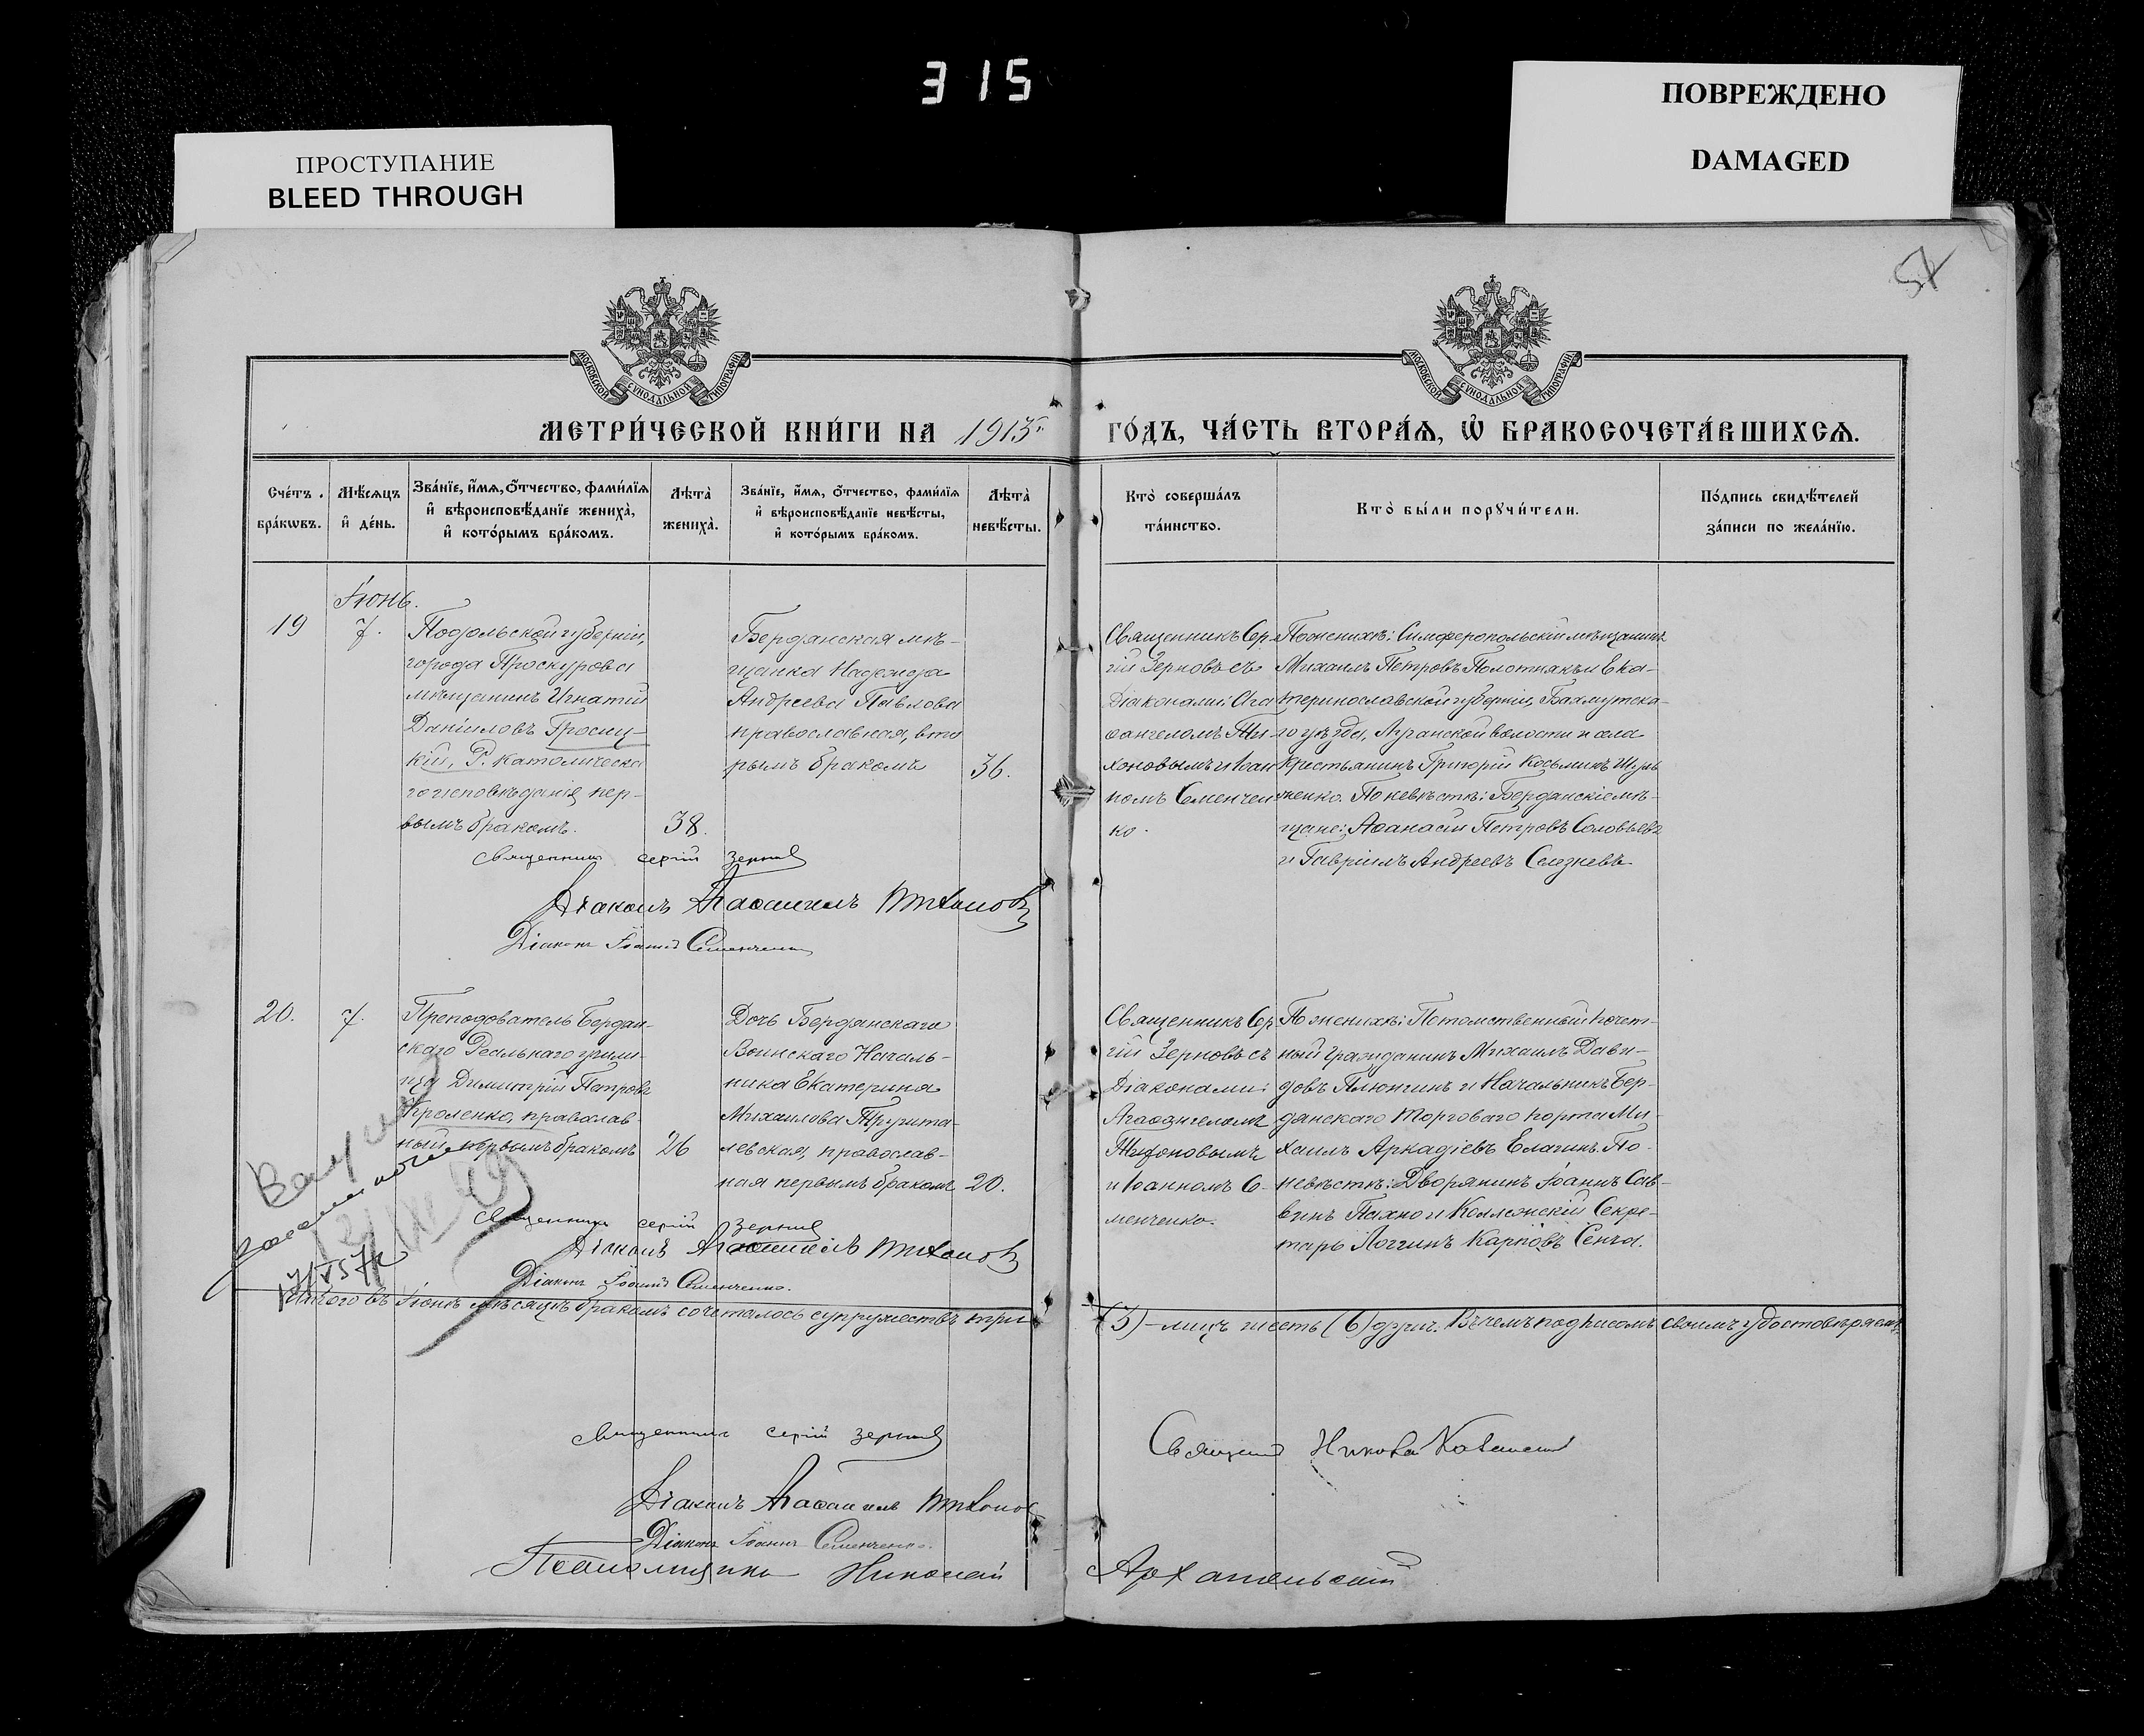 315
ПРОСТУПАНИЕ
BLEED THROUGH
ПОВРЕЖДЕНО
DAMAGED
МОСКОВСКОЙ СУНОДАЛЬНОЙ ТИПОГРАФІИ
МОСКОВСКОЙ СУНОДАЛЬНОЙ ТИПОГРАФІИ
МЕТРИ́ЧЕСКОЙ КНИ́ГИ НА 1913 г.
ГО́ДЪ, ЧА́СТЬ ВТОРА́Ѧ, Ѡ҆ БРАКОСОЧЕТА́ВШИХСѦ.
Сче́тъ
бра́кѡвъ.
Мѣ́сѧцъ
и҆ де́нь.
Зва́нїе, и҆́мѧ, ѻ҆́тчество, фами́лїѧ
и҆ вѣроисповѣ́данїе жениха̀,
и҆ кото́рымъ бра́комъ.
Лѣта̀
жениха̀.
Зва́нїе, и҆́мѧ, ѻ҆́тчество, фами́лїѧ
и҆ вѣроисповѣ́данїе невѣ́сты,
и҆ кото́рымъ бра́комъ.
Лѣта̀
невѣ́сты.
Кто̀ соверша́лъ
та́инство.
Кто̀ бы́ли порꙋчи́тели.
По́дпись свидѣ́телей
за́писи по жела́нїю.
Іюнь.
19
7.
Подольской губерніи,
города Проскурова
мѣщанинъ Игнатій
Даніиловъ Гросиц-
кій, Р. Католическа
го исповѣданія, пер-
вымъ бракомъ.
38.
Бердянская мѣ-
щанка Надежда
Андреева Павлова
православная, вто
рымъ бракомъ
36.
Священникъ Сер
гій Зерновъ съ
Діаконами: Ага
ѳангеломъ Ти-
хоновымъ и Іоан
номъ Семенчен
ко.
По женихѣ: Симферопольскій мѣщанинъ
Михаилъ Петровъ Полотнякъ и Ека-
теринославской губерніи, Бахмутска-
го уѣзда, Луганской волости и села
крестьянинъ Григорій Косьминъ
ченко. По невѣстѣ: Бердянскіе мѣ-
щане: Аѳанасій Петровъ Соловьевъ
и Гавріилъ Андреевъ Селезневъ
Священникъ Сергій Зерновъ
Діаконъ Агаѳангелъ Тихоновъ
Діаконъ Іоаннъ Семенченко
20.
7.
Преподователь Бердян-
скаго Реальнаго учили-
ща Димитрій Петровъ
Кроленко, православ
ный первымъ бракомъ
26
Дочь Бердянскаго
Воинскаго Началь-
ника Екатерина
Михаилова
левская, православ-
ная первымъ бракомъ
20.
Священникъ Сер
гій Зерновъ съ
Діаконами:
Агаѳангеломъ
Тихоновымъ
и Іоанномъ Се-
менченко.
По женихѣ: Потомственный почет-
ный гражданинъ Михаилъ Дави-
довъ Плюгинъ и Начальникъ Бер-
дянскаго Торговаго порта Ми-
хаилъ Аркадіевъ Елагинъ. По
невѣстѣ: Дворянинъ Іоаннъ Сав-
винъ Пахно и Коллежскій Секре-
тарь Логгинъ Карповъ Сенча.
Священникъ Сергій Зерновъ
Діаконъ Агаѳангелъ Тихоновъ
Діаконъ Іоаннъ Семенченко.
Итого въ Іюнѣ мѣсяцѣ бракомъ сочеталось супружествъ три
(3) – лицъ шесть (6) Въ чемъ подписомъ своимъ удостовѣряемъ
Священникъ Сергій Зерновъ
Діаконъ Агаѳангелъ Тихоновъ
Діаконъ Іоаннъ Семенченко.
Псаломщикъ Николай
Архангельскій
Священникъ